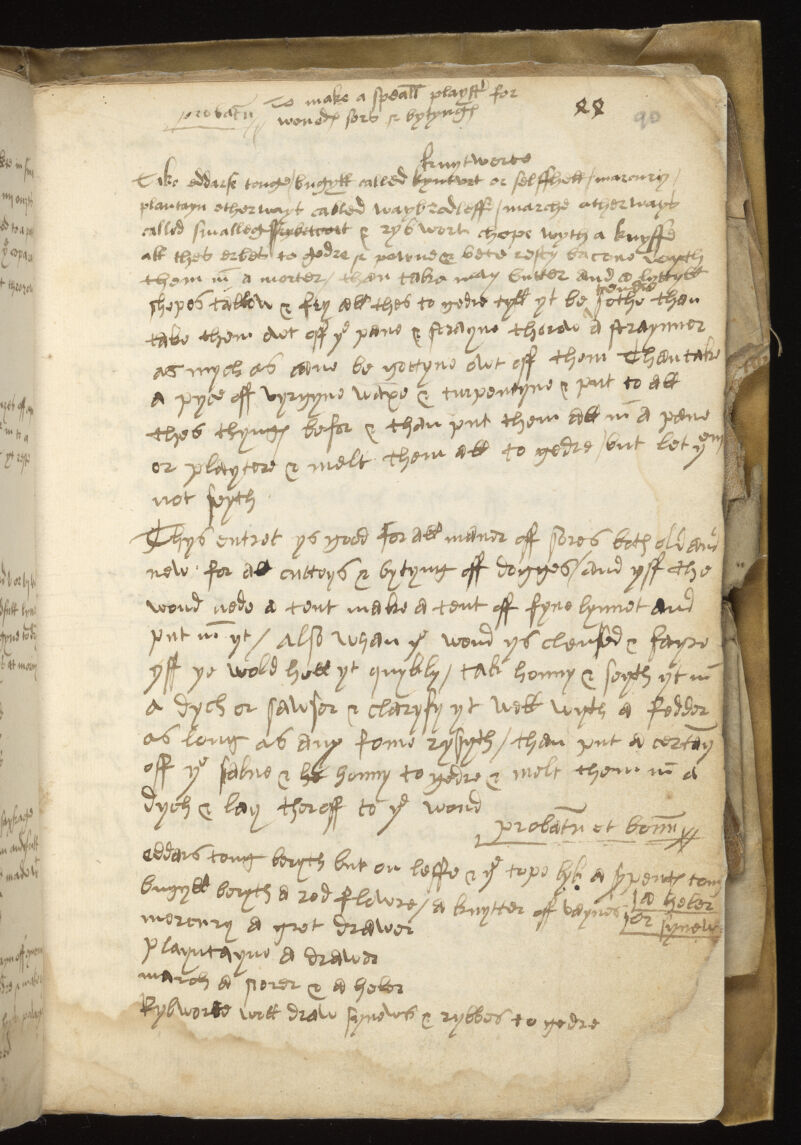 To make a speall playst for
probatu wondes sors & bytyngs
90
knytworte
Take eddars tonge / bugyll called or selffhell / marcury /
plantayn otherwayt called waybredleff / marche otherways
called smalleg & rybwort chope wyth a knyffe
all thes erbes to gedre & powne & bete resty bacone wyth
them in a morter / than take may butter and a lyttyll
shepes tallow & fry all thes to gedre tyll yt be sothe than
take them owt off ye pane & strayne thorow a straynner
as mych as cane be gottyne owt off them Than take
a pyce off vyrgyne waxe & turpentyne & put to all
thes thyngs befor & than put them all in a pane
or playtere & melt them all to gedre / but let yem
not seyth
Thys entret ys good for all maner off sores both old and
new for all cuttoys & bytyng off dogges / and yff the
wond nede a tent make a tent off fyne lynnet and
put in yt / also whan ye wond ys clensed & fayre
yff ye wold hell yt quykly / take honny & seyth yt in
a dych or sawser & claryfy yt well wyth a fedder
as long as any fome rysyth / than put a certay
off ye salve & honny to gedre & melt them in a
dych & lay theroff to ye wond
probatu et bonu
eddars tong beryth but on leffe & ye tope lyk a serpents tong
bugyll beryth a red flowre / a knytter off vaynes or synews
a heler
mercury a gret drawer
playntayne a drawer
march a sorer & a heler
Rybworte will draw synews & rybbes to gedre